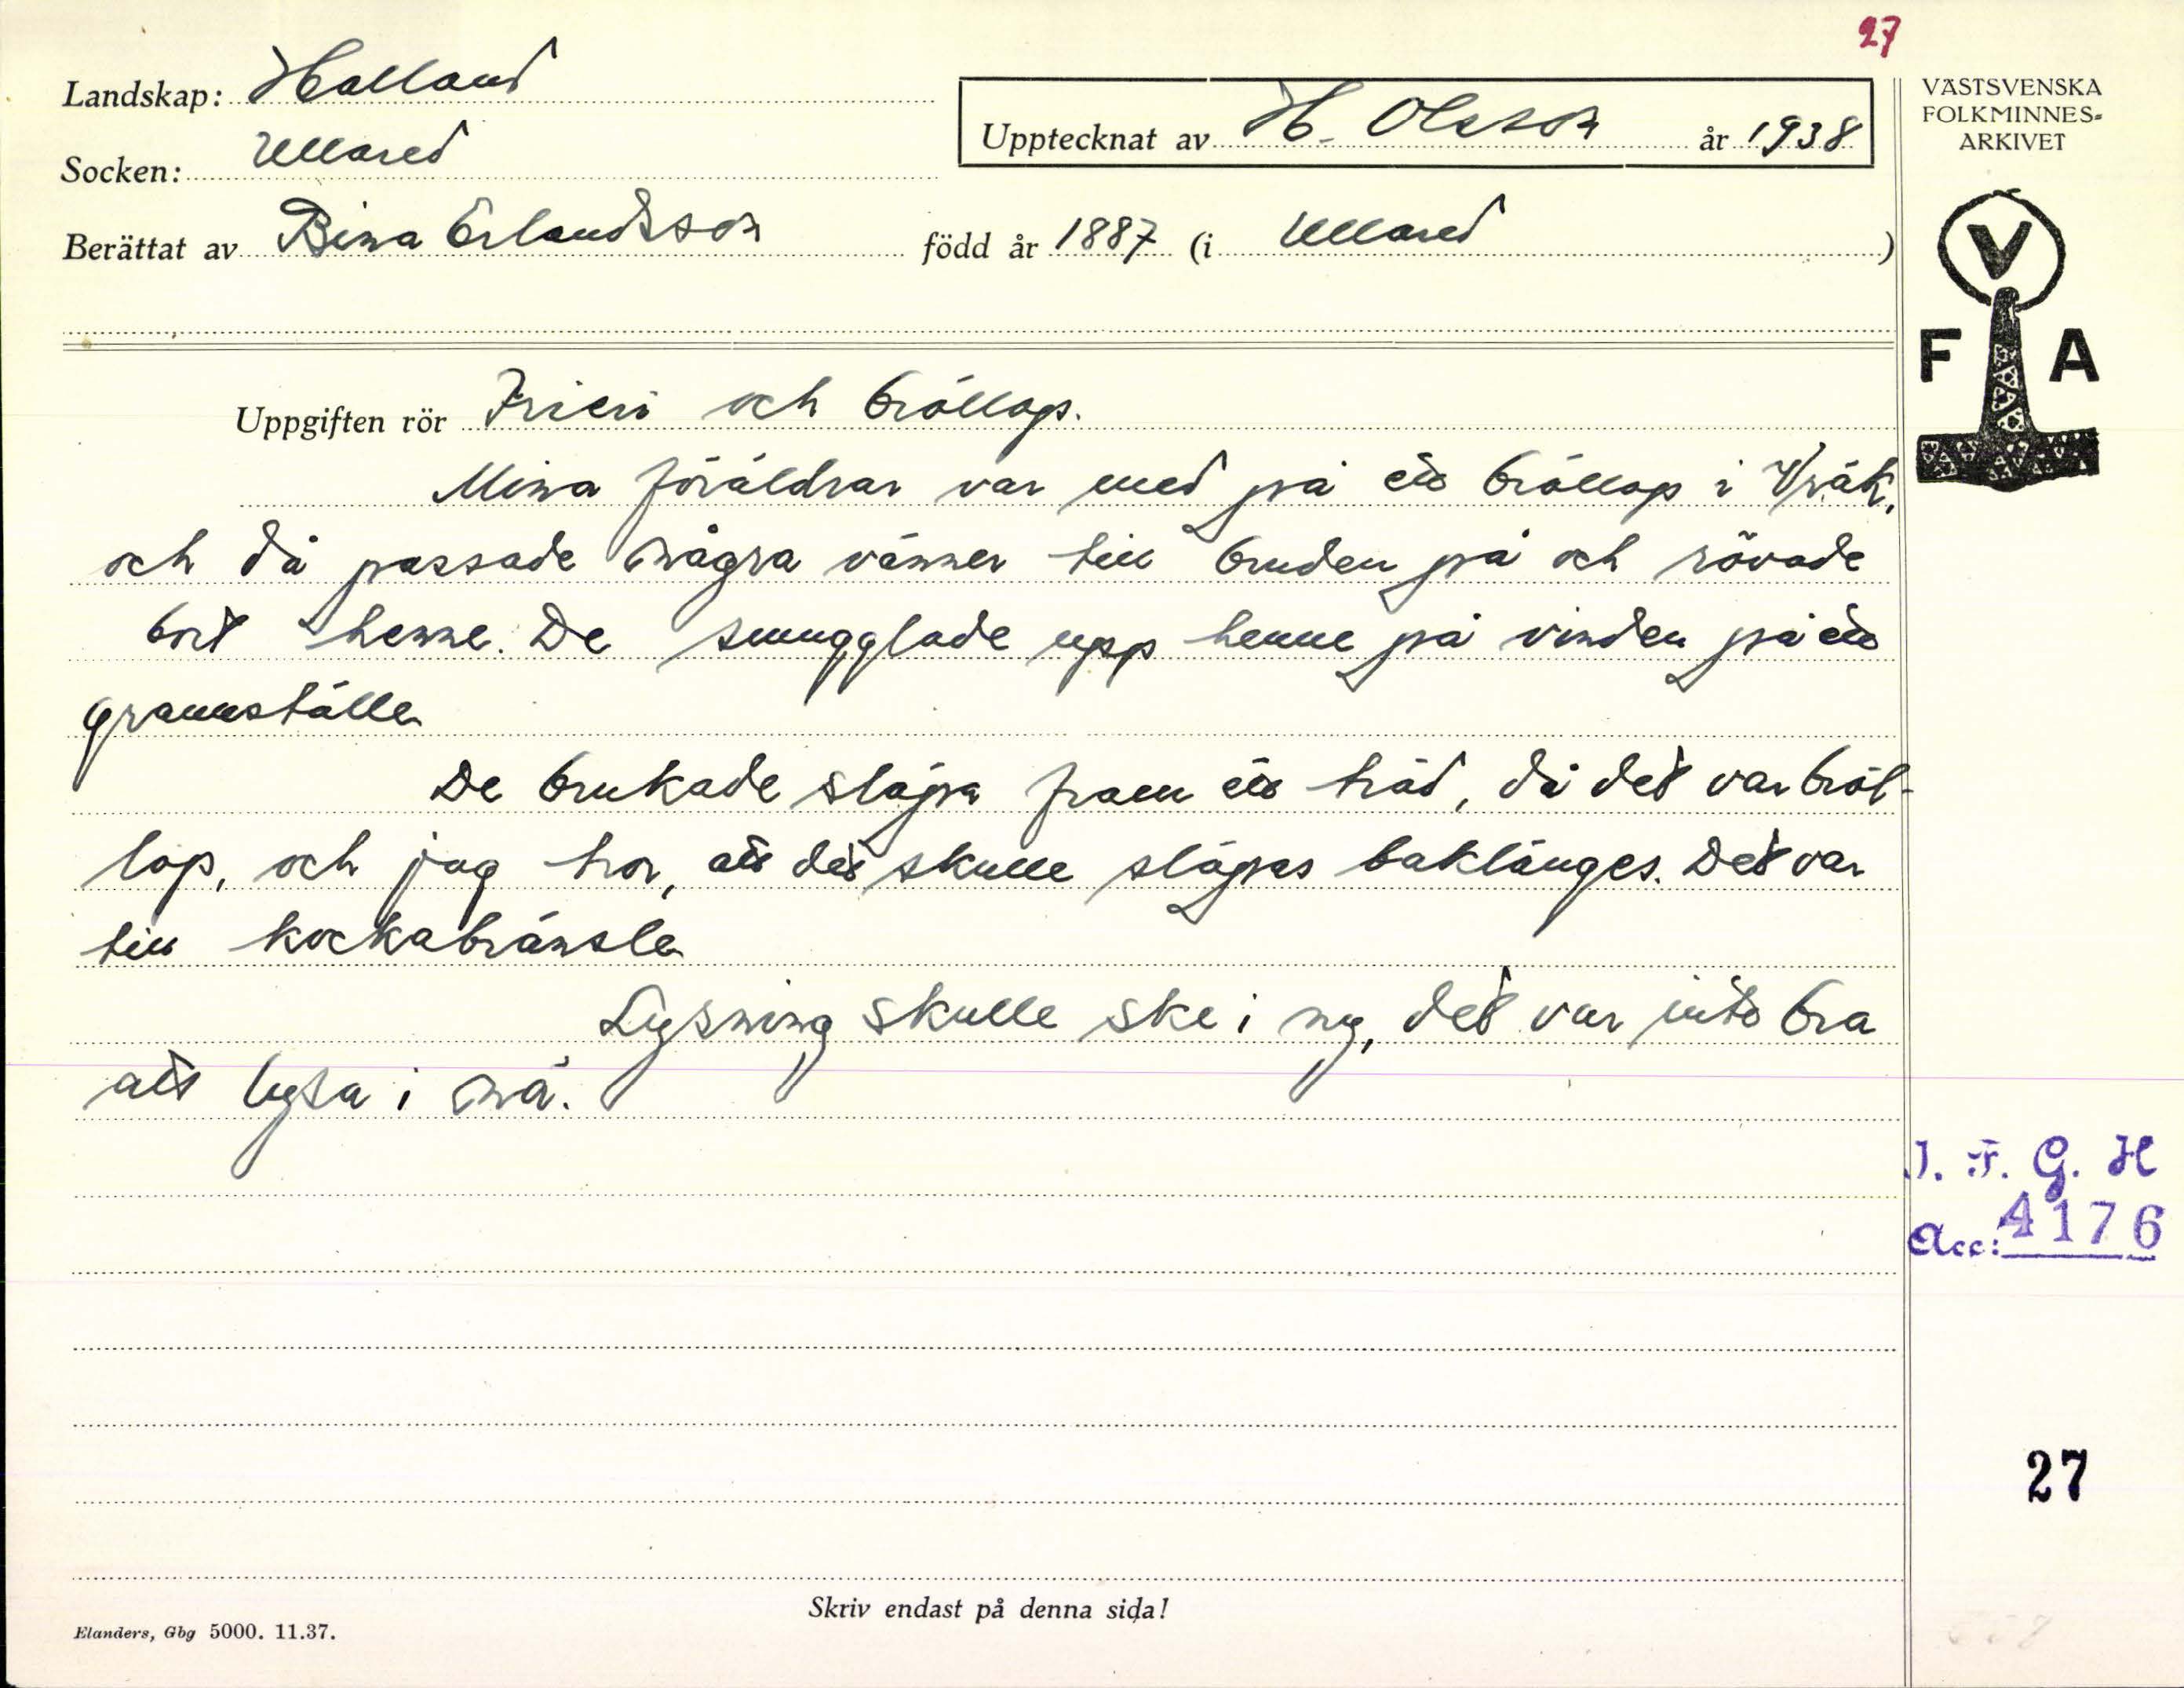 27
Landskap: Halland
Socken: Ullared
Upptecknat av H. Olsson år 1938
Berättat av Bina Erlandsson född år 1887 (i Ullared)
VÄSTSVENSKA
FOLKMINNES=
ARKIVET
V
F A
Uppgiften rör Frieri och bröllop.
Mina föräldrar var med på ett bröllop i Vräk,
och då passade några vänner till bruden på och rövade
bort henne. De smugglade upp henne på vinden på ett
grannställe
De brukade släpa fram ett träd, då det var bröl-
lop, och jag tror, att det skulle släpas baklänges. Det var
till kockabränsle
Lysning skulle ske i ny, det var inte bra
att lysa i nä.
I. F. G. H
Acc: 4176
27
Skriv endast på denna sida!
Elanders, Gbg 5000. 11.37.